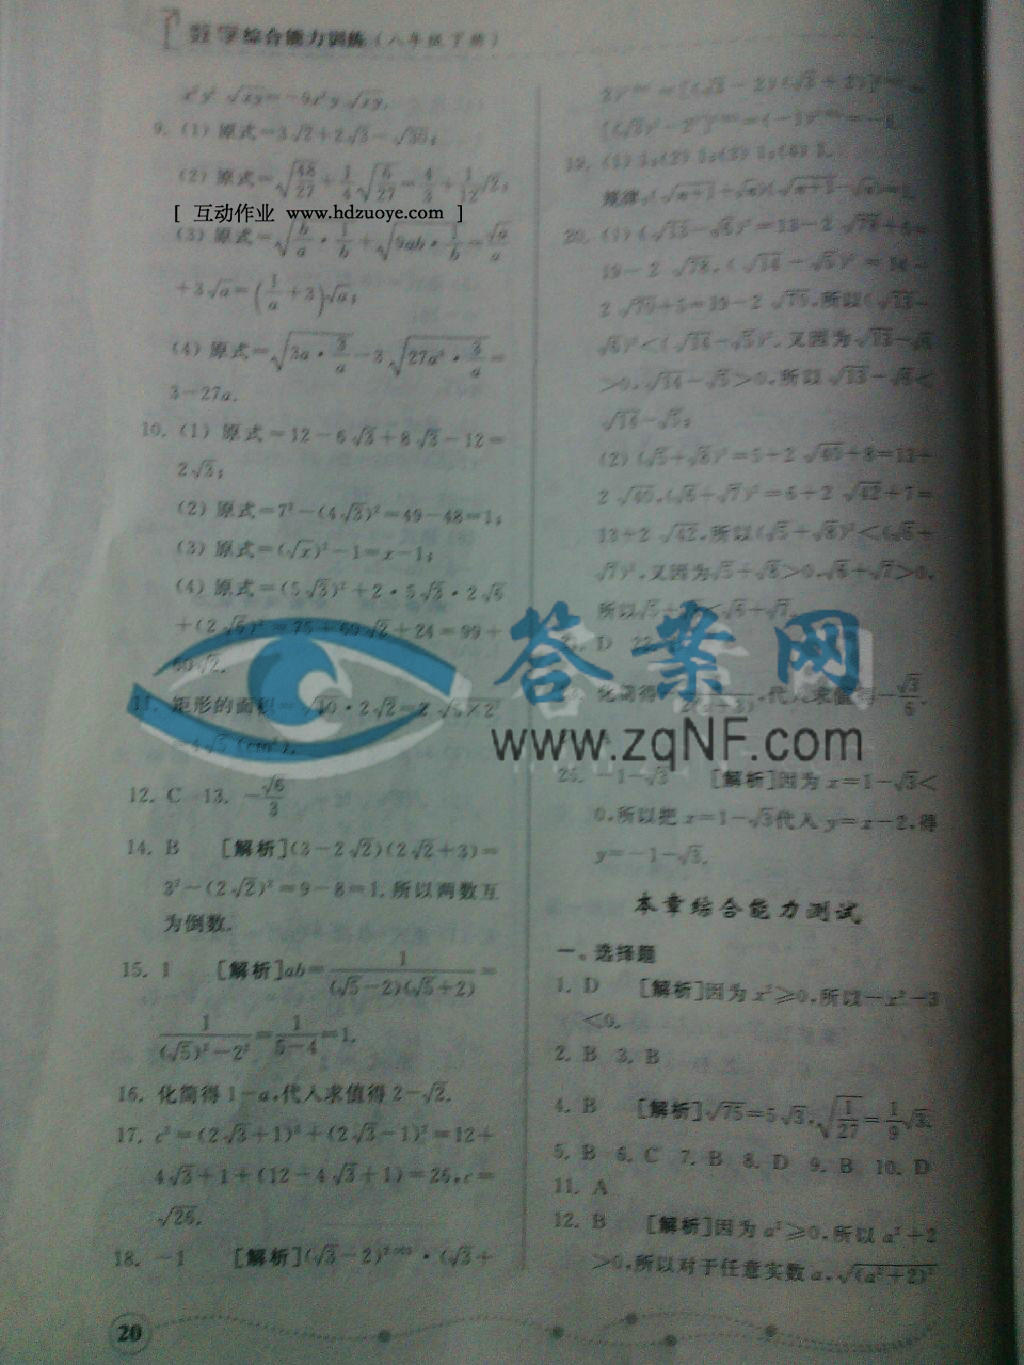 数学综合能力训练(八年级下册)
9. (1) 原式=3√2+2√3-√30;
[ 互动作业 www.hdzuoye.com ]
+3√a=(1/a+3)√a;
(4) 原式=√(3a·3/a)-3√(27a³·3/a)=
3-27a.
10. (1) 原式=12-6√3+8√3-12=
2√3;
(2) 原式=7²-(4√3)²=49-48=1;
(3) 原式=(√x)²-1=x-1;
(4) 原式=(5√3)²+2·5√3·2√6
+(2√6)²=75+60√2+24=99+
60√2.
11. 矩形的面积=√10·2√2=2√5×2²
=4√5(cm²).
12. C 13. -√6/3
14. B [解析](3-2√2)(2√2+3)=
3²-(2√2)²=9-8=1.所以两数互
为倒数.
15. 1 [解析]ab=1/((√5-2)(√5+2))=
1/((√5)²-2²)=1/(5-4)=1.
16. 化简得1-a,代入求值得2-√2.
17. c²=(2√3+1)²+(2√3-1)²=12+
4√3+1+(12-4√3+1)=26,c=
√26.
18. -1 [解析](√3-2)·(√3+
19. (1) 1;(2) 1;(3) 1;(4) 1.
规律:(√(n+1)+√n)(√(n+1)-√n)=1.
20. (1) (√13-√6)²=13-2√78+6=
19-2√78,(√14-√5)²=14-
2√70+5=19-2√70,所以(√13-
√6)²<(√14-√5)².又因为√13-√6
>0,√14-√5>0,所以√13-√6<
√14-√5;
(2) (√5+√8)²=5+2√40+8=13+
2√40,(√6+√7)²=6+2√42+7=
13+2√42,所以(√5+√8)²<(√6+
√7)².又因为√5+√8>0,√6+√7>0,
所以√5+√8<√6+√7.
D 22.
化简得 ,代入求值得-√3/6.
答案网
www.zqNF.com
-1-√3 [解析]因为x=1-√3<
0,所以把x=1-√3代入y=x-2,得
y=-1-√3.
本章综合能力测试
一、选择题
1. D [解析]因为x²≥0,所以-x²-3
<0.
2. B 3. B
4. B [解析]√75=5√3,√(1/27)=1/9√3.
5. B 6. C 7. B 8. D 9. B 10. D
11. A
12. B [解析]因为a²≥0,所以a²+2
>0,所以对于任意实数a,√(a²+2)²
20